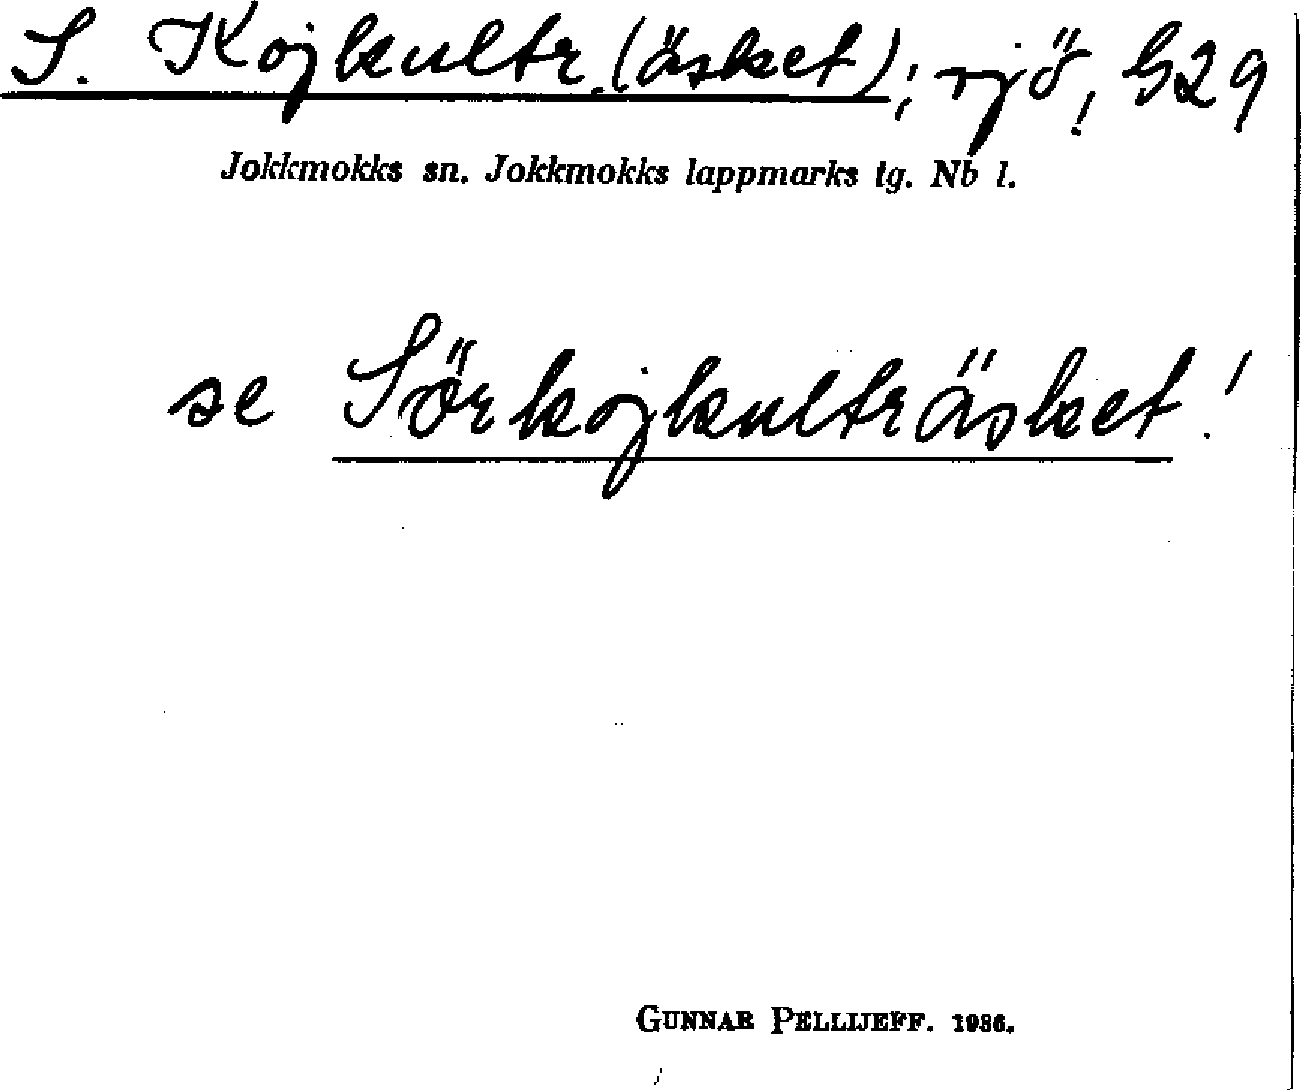 S. Kojkultr.(äsket); sjö, G29
Jokkmokks sn. Jokkmokks lappmarks tg. Nb l.
se Sörkojkulträsket!
GUNNAR PELLIJEFF. 1986.